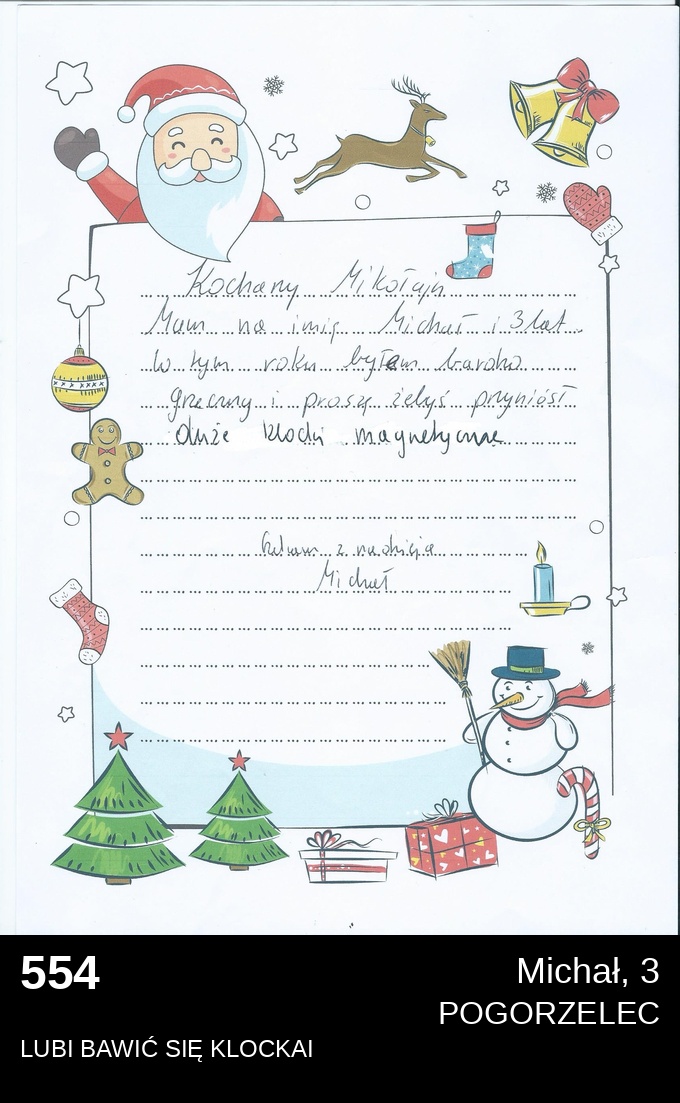 Kochany Mikołaju
Mam na imię Michał i 3 lat.
W tym roku byłem bardzo
grzeczny i proszę żebyś przyniósł
duże klocki magnetyczne
Czekam z nadzieją
Michał
554
Michał, 3
POGORZELEC
LUBI BAWIĆ SIĘ KLOCKAI